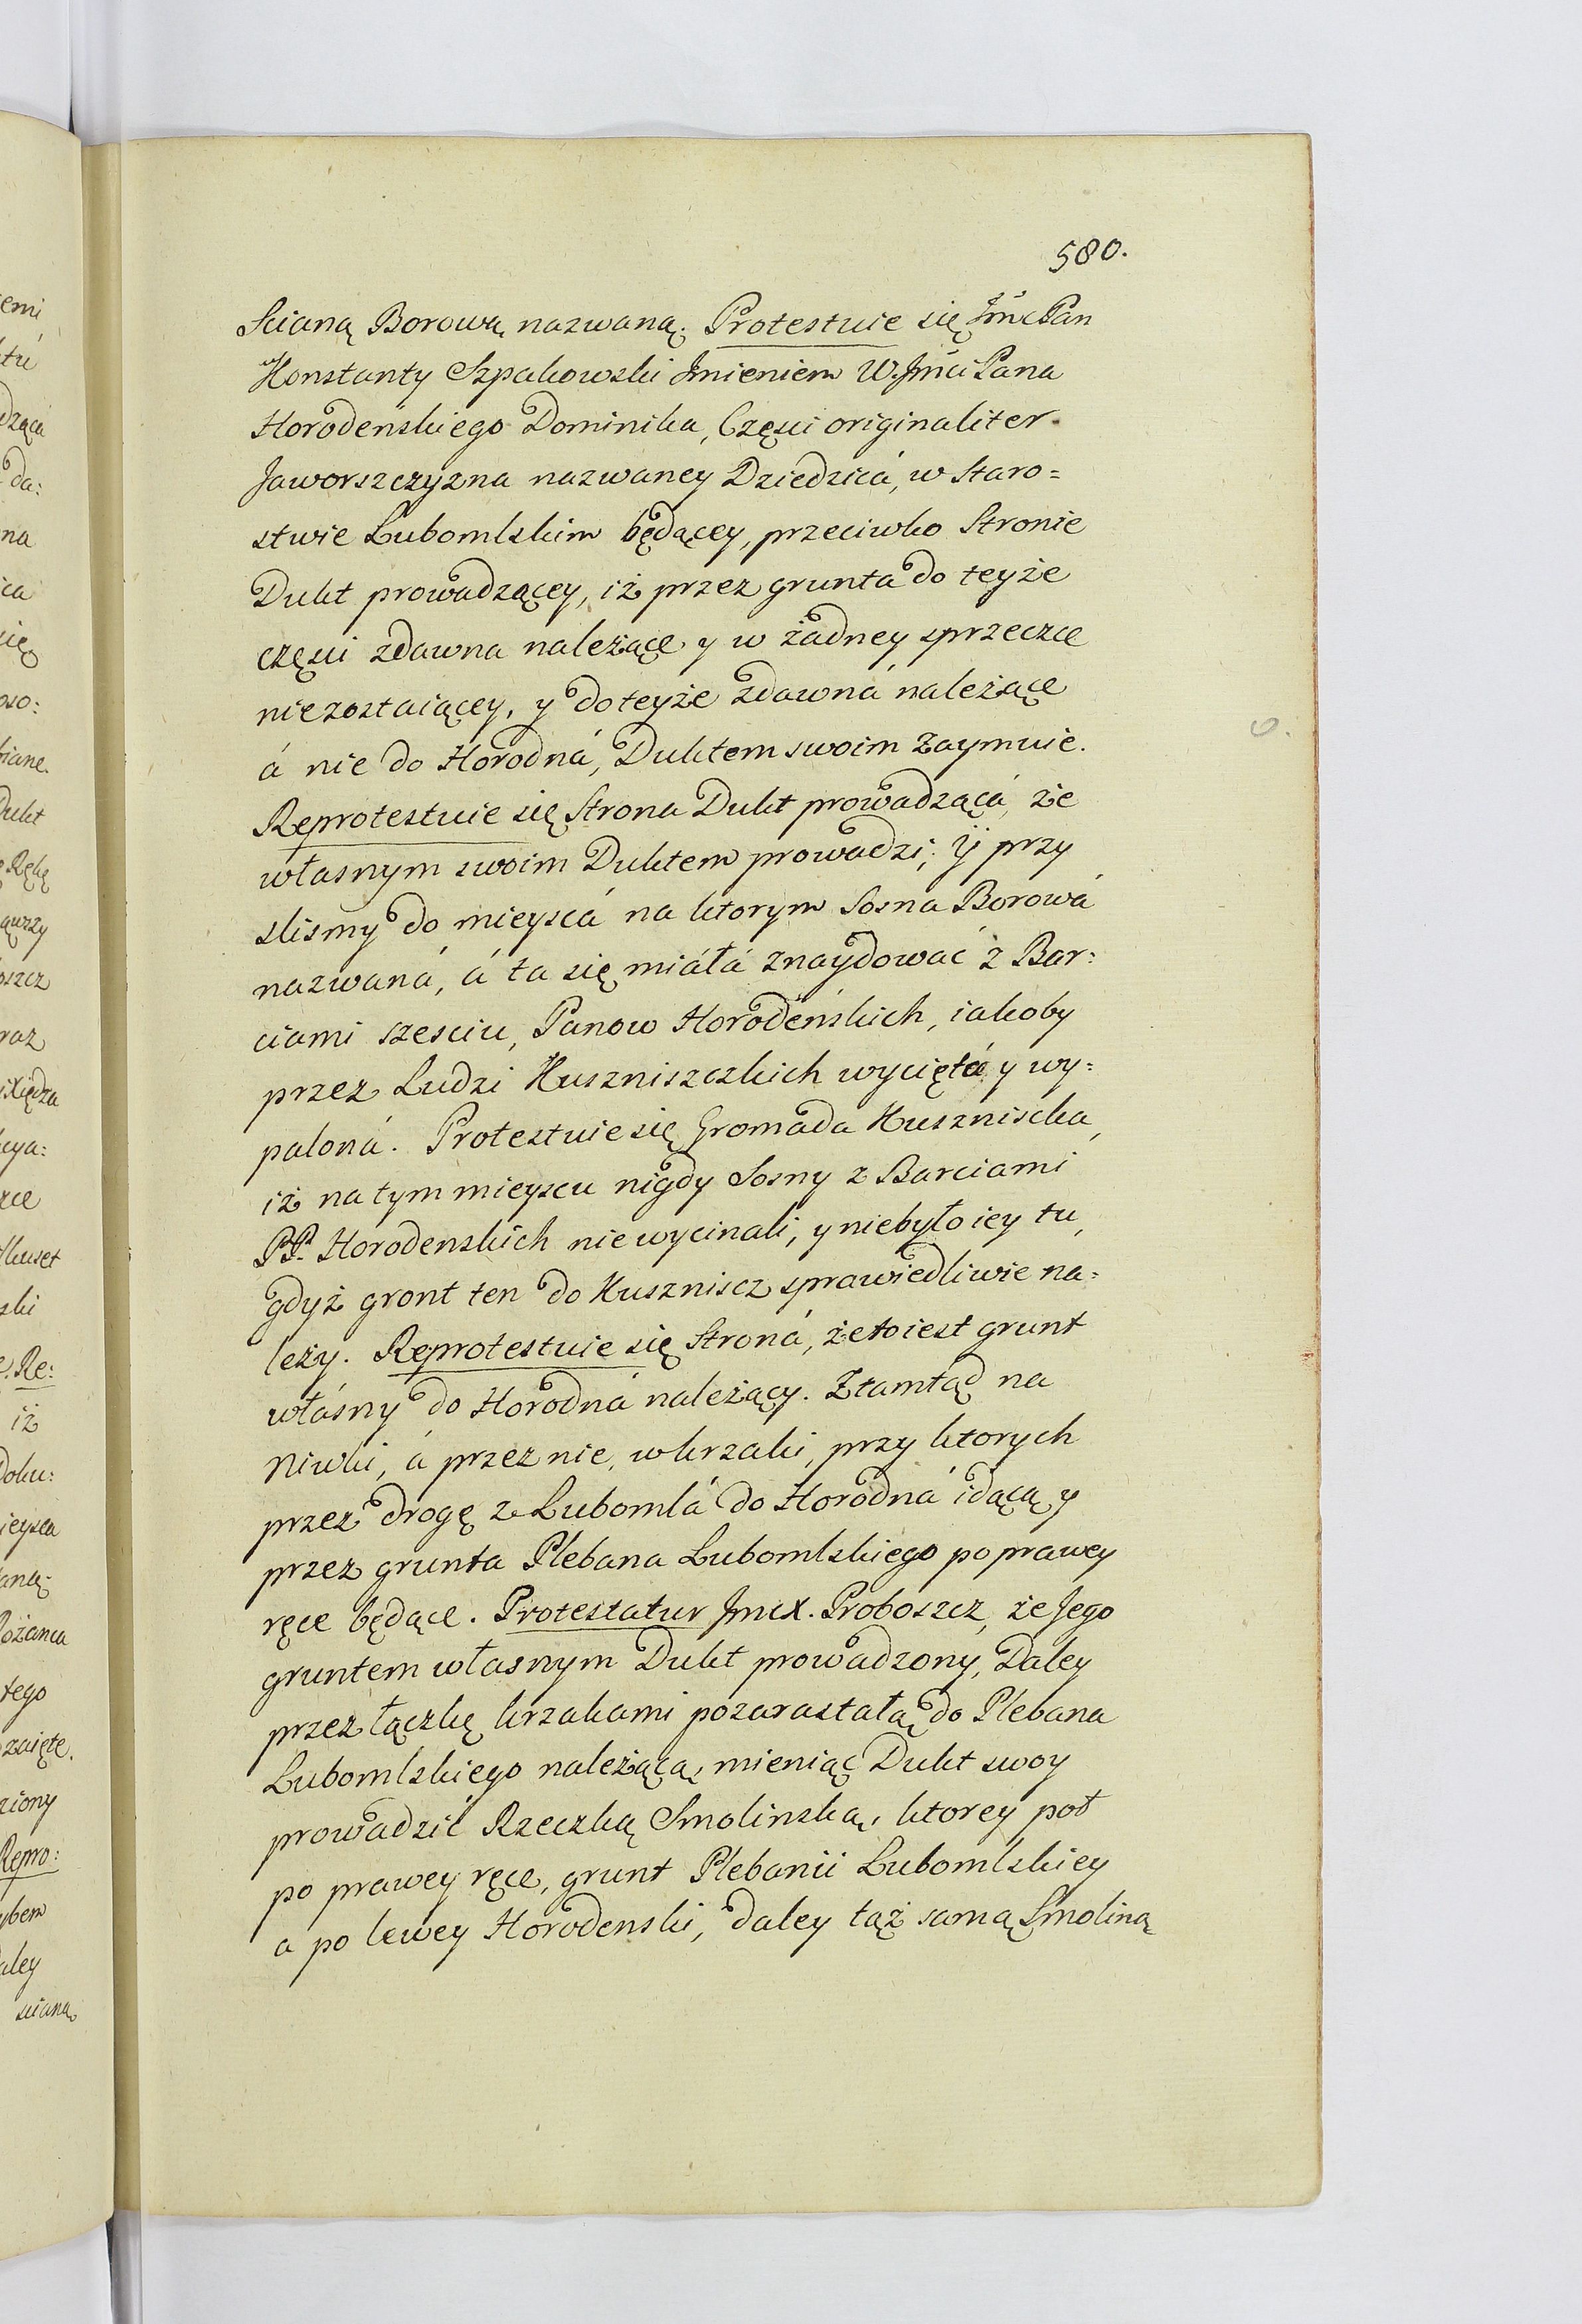 580.
Scianą Borową nazwaną. Protestuie się Jmć Pan
Konstanty Szpakowski Jmieniem W. Jmći Pana
Horodeńskiego Dominika, Częsci originaliter
Jaworszczyzna nazwaney Dziedzicá, w Staro=
stwie Lubomlskim będącey, przeciwko Stronie
Dukt prowadzącey, iż przez grunta do teyże
częsci zdawna należące y w żadney sprzeczce
niezostaiącey, y do teyże zdawná należące
á nie do Horodná, Duktem swoim zaymuie.
Reprotestuie się Strona Dukt prowadzącá, że
własnym swoim Duktem prowadzi; ÿ przy
slismy do mieyscá na ktorym Sosna Borowá
nazwaná, á ta się miáłá znaydować z Bar:
ciami szesciu, Panow Horodeńskich, iakoby
przez Ludzi Kuszniszczkich wyciętá y wy=
paloná. Protestuie się Gromada Kusznisска,
iż na tym mieyscu nigdy Sosny z Barciami
PP. Horodenskich niewycinali, y niebyło iey tu,
gdyż gront ten do Kuszniscz sprawiedliwie na=
leży. Reprotestuie się Stroná, że to iest grunt
włásny do Horodná należący. Ztamtąd na
Niwki, á przez nie, w krzaki, przy ktorych
przez drogę z Lubomlá do Horodná idącą y
przez grunta Plebana Lubomlskiego po prawey
ręce będące. Protestatur JmcX. Proboszcz, że Jego
gruntem własnym Dukt prowadzony, Daley
przez łączkę krzakami pozarastałą do Plebana
Lubomlskiego należącą, mieniąc Dukt swoy
prowadzić Rzeczką Smolinską, ktorey poł
po prawey ręce, grunt Plebanii Lubomlskiey
a po lewey Horodenski, daley táż samą Smoliną
emi
dzącá
da:
na
ica
się
oso:
biane.
Dukt
Rękę
oszcz
raz
Xiędza
cya:
ski
Re:
iż
Doku:
ieysca
aną.
Różanca
tego
zaięte.
Repro:
aley
sciana